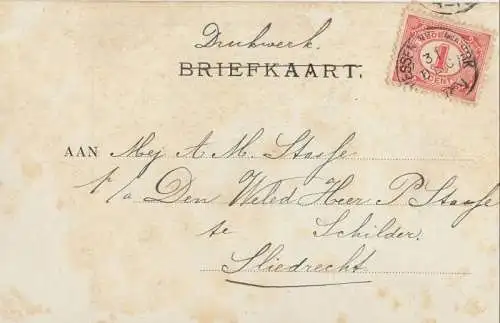 Drukwerk.
BRIEFKAART.
NEDERLAND
1
CENT
AAN Mej A. M. Stasse
p/a Den Weled Heer P Stasse
te Schilder.
Sliedrecht